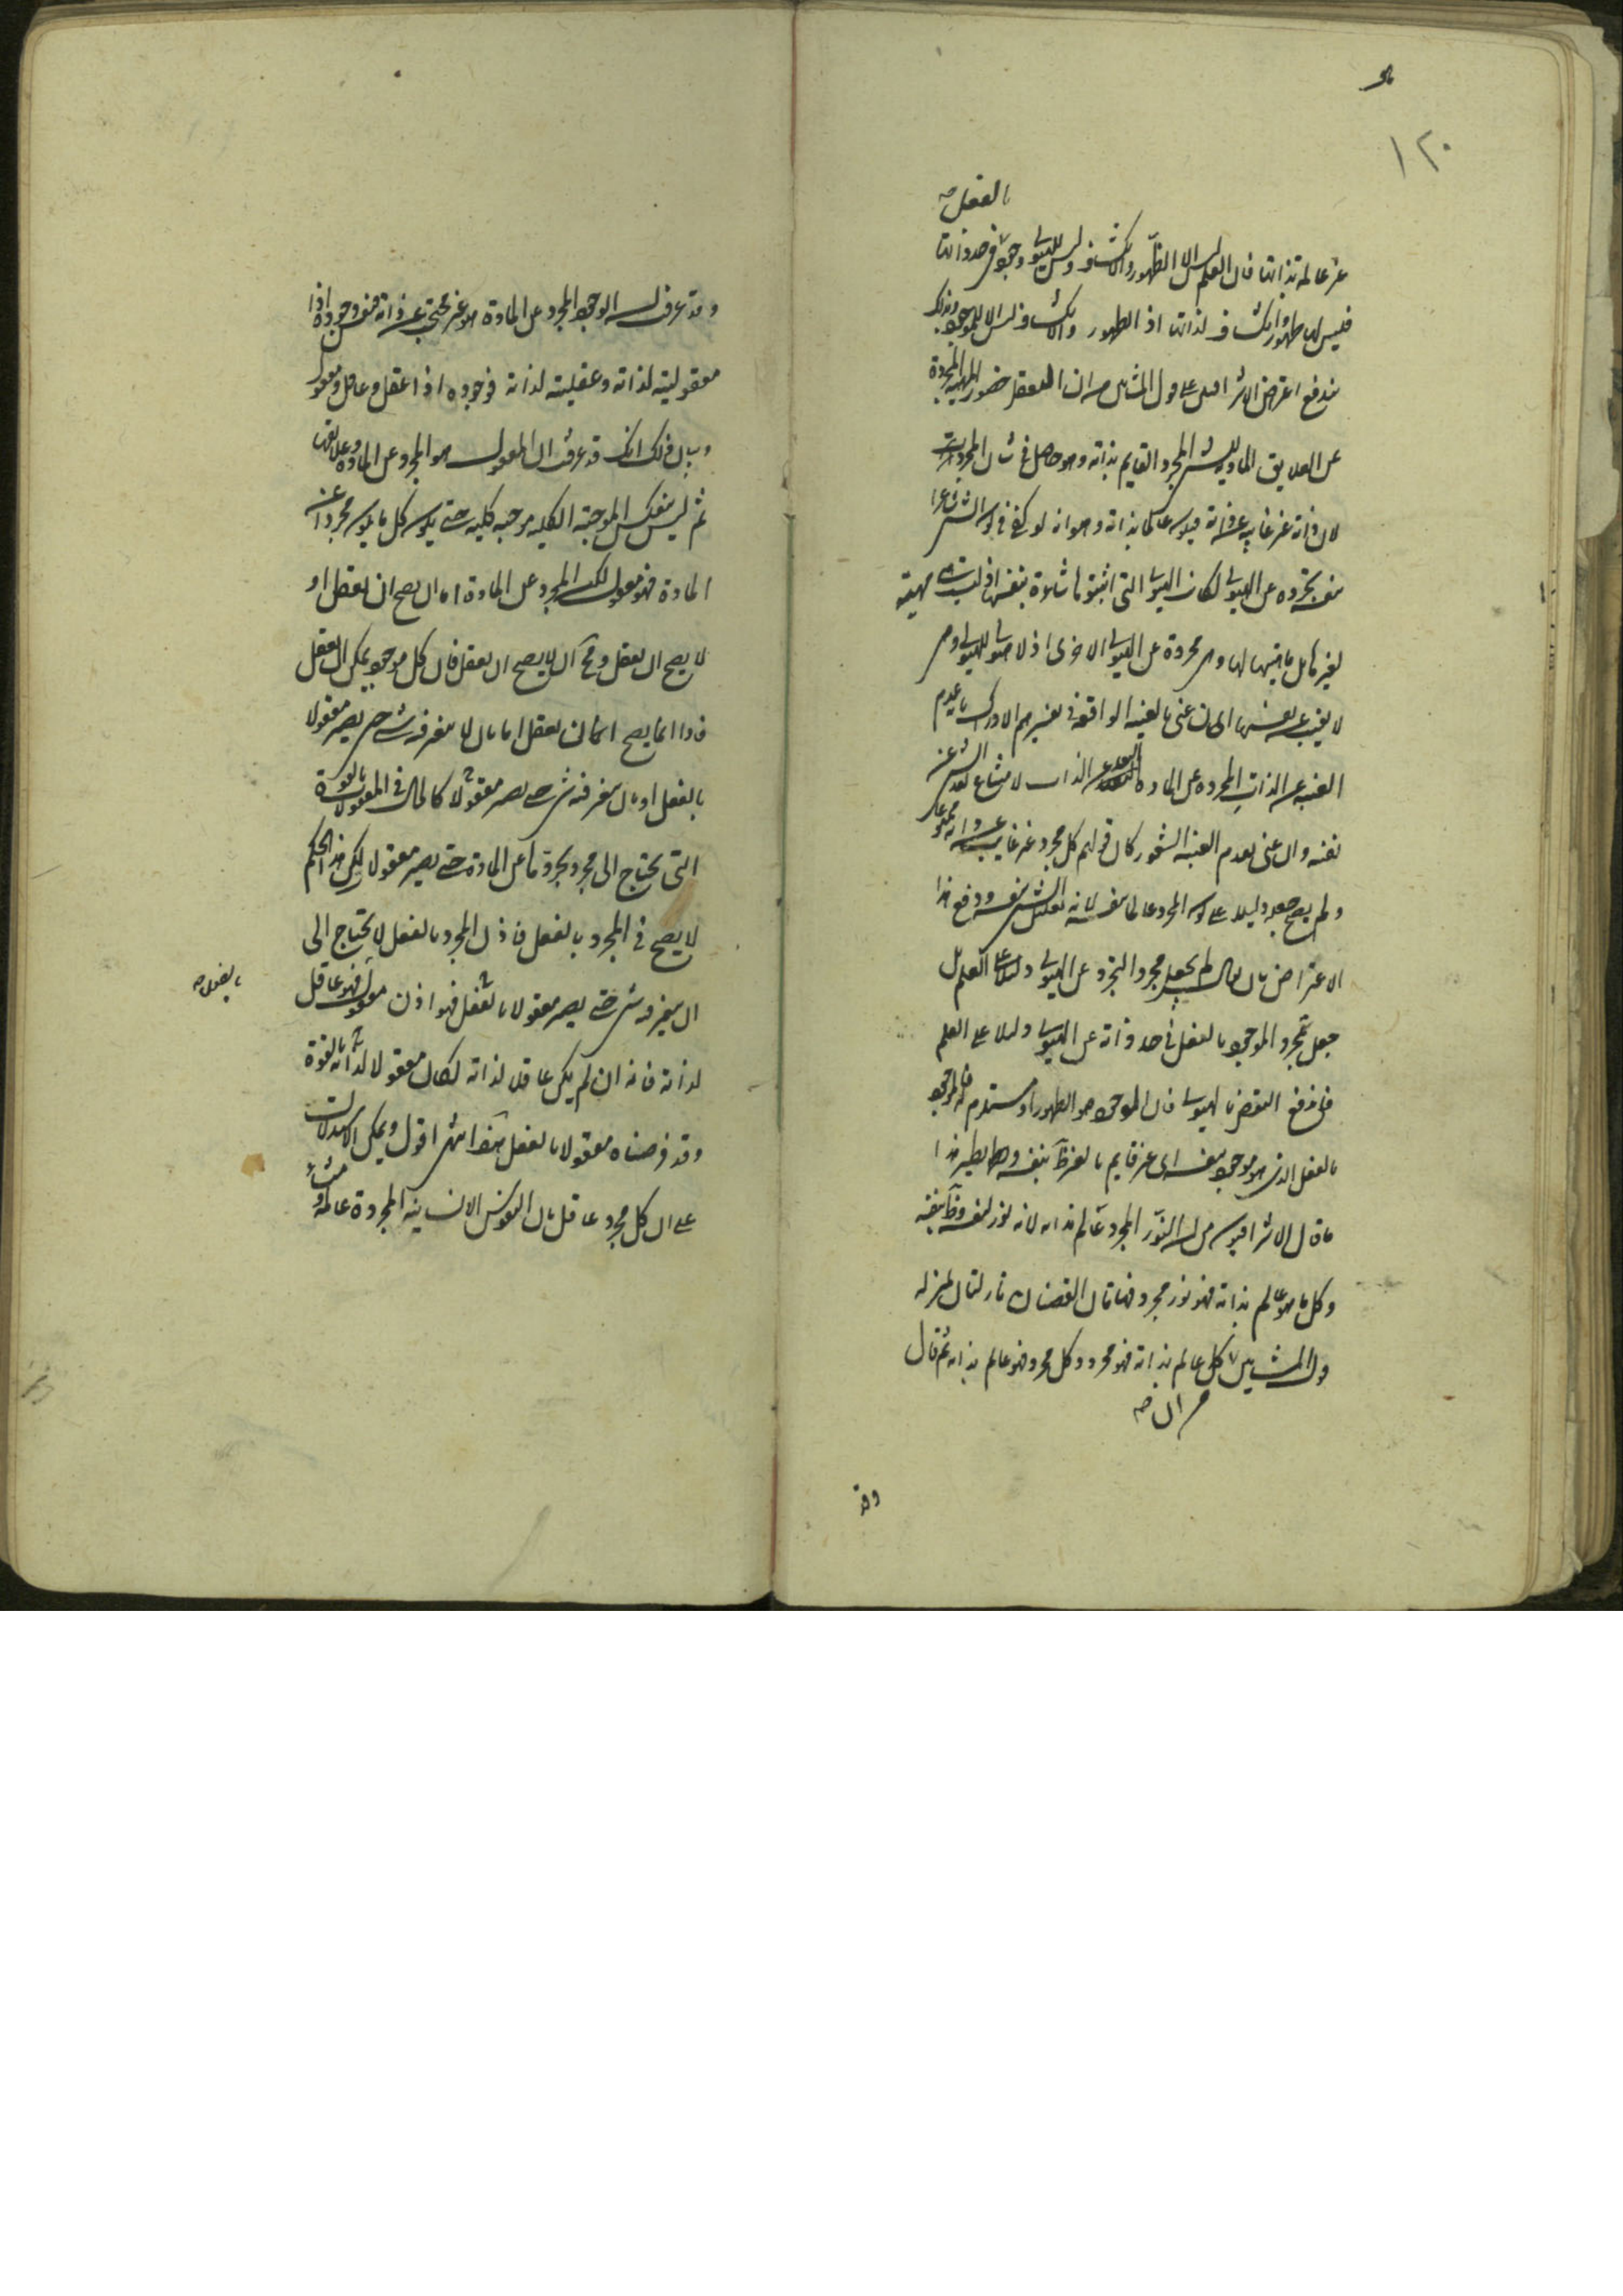 ١٢٠
بالفعل صه
غير عالمة بذاتها فان العلم ليس الا الظهور والانكشاف وليس للهيولى وجود في حد ذاتها
فليس لها ظهور وانكشاف لذاتها اذ الظهور والانكشاف ليس الا للموجود وبذلك
يندفع اعتراض الاشراقيين على قول المشائين من ان التعقل حضور المهية المجردة
عن العلايق المادية للشيء المجرد القايم بذاته وهو حاصل في شان المجردات
لان ذاته غير غايب عن ذاته فيكون عالما بذاته وهو انه لو كفى في كون الشيء شاعرا
بنفسه تجرده عن الهيولى لكانت الهيولى التي اثبتوها شاعرة بنفسها اذ ليست هي مهية
لغيرها بل ماهيتها لها وهي مجردة عن الهيولى الاخرى اذ لا هيولى للهيولى وهي
لا يغيب عن نفسها ان عنى بالغيبة الواقعة في تفسيرهم الادراك بانه عدم
الغيبة عن الذات المجردة عن المادة البعد عن الذات لامتناع بعد الشيء عن
نفسه وان عنى بعدم الغيبة الشعور كان قولهم كل مجرد غير غايب عن ذاته ممنوعا
ولم يصح جعله دليلا على كون المجرد عالما بنفسه لانه تعليل الشيء بنفسه ودفع هذا
الاعتراض بان يقال لم يجعل مجرد التجرد عن الهيولى دليلا على العلم بل
جعل تجرد الموجود بالفعل في حد ذاته عن الهيولى دليلا على العلم
فاندفع النقض بالهيولى فان الموجود هو الظهور او مستلزم له فالموجود
بالفعل الذي هو موجود بنفسه اي غير قايم بالغير ظاهر بنفسه وهذا نظير
ما قال الاشراقيون من ان النور المجرد عالم بذاته لانه نور لنفسه وظاهر بنفسه
وكل ما هو عالم بذاته فهو نور مجرد فهاتان القضيتان نازلتان منزلة
قول المشائين كل عالم بذاته فهو مجرد وكل مجرد فهو عالم بذاته ثم قال
وقد
وقد عرفت ان الوجود المجرد عن المادة هو غير محتجب عن ذاته فنفس وجوده اذا
معقوليته لذاته وعقليته لذاته فوجوده اذا عقل وعاقل ومعقول
وبيان ذلك انك قد عرفت ان المعقول هو المجرد عن المادة وعلايقها
ثم ليس ينعكس الموجبة الكلية موجبة كلية حتى يكون كل ما يكون مجردا عن
المادة فهو معقول لكن المجرد عن المادة اما ان يصح ان يعقل او
لا يصح ان يعقل ومحال ان لا يصح ان يعقل فان كل موجود يمكن ان يعقل
فاذا انما يصح ان يعقل اما بان لا يتغير فيه شيء حتى يصير معقولا
بالفعل او بان يتغير فيه شيء حتى يصير معقولا كالحال في المعقولات بالقوة
التي يحتاج الى مجرد يجردها عن المادة حتى يصير معقولا لكن هذا الحكم
لا يصح في المجرد بالفعل فاذن المجرد بالفعل لا يحتاج الى
ان يتغير فيه شيء حتى يصير معقولا بالفعل فهو اذن معقول فهو عاقل
بالفعل صه
لذاته فانه ان لم يكن عاقلا لذاته لكان معقولا لذاته بالقوة
وقد فرضناه معقولا بالفعل هذا انتهى اقول ويمكن الاستدلال
على ان كل مجرد عاقل بان النفوس الانسانية المجردة عالمة